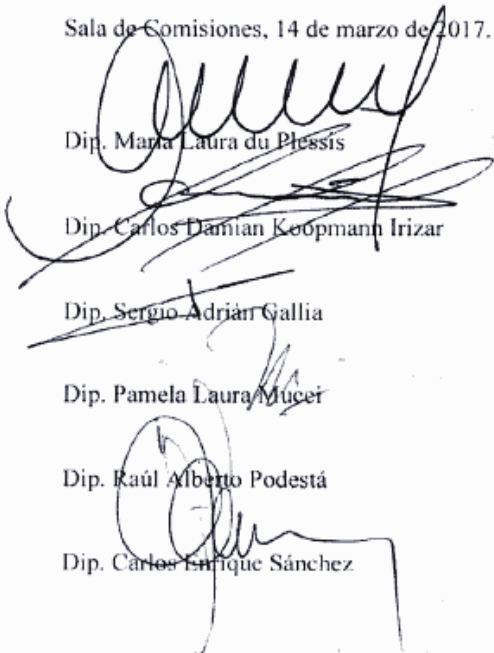 Sala de Comisiones, 14 de marzo de 2017.
Dip. María Laura du Plessis
Dip. Carlos Damian Koopmann Irizar
Dip. Sergio Adrián Gallia
Dip. Pamela Laura Mucci
Dip. Raúl Alberto Podestá
Dip. Carlos Enrique Sánchez